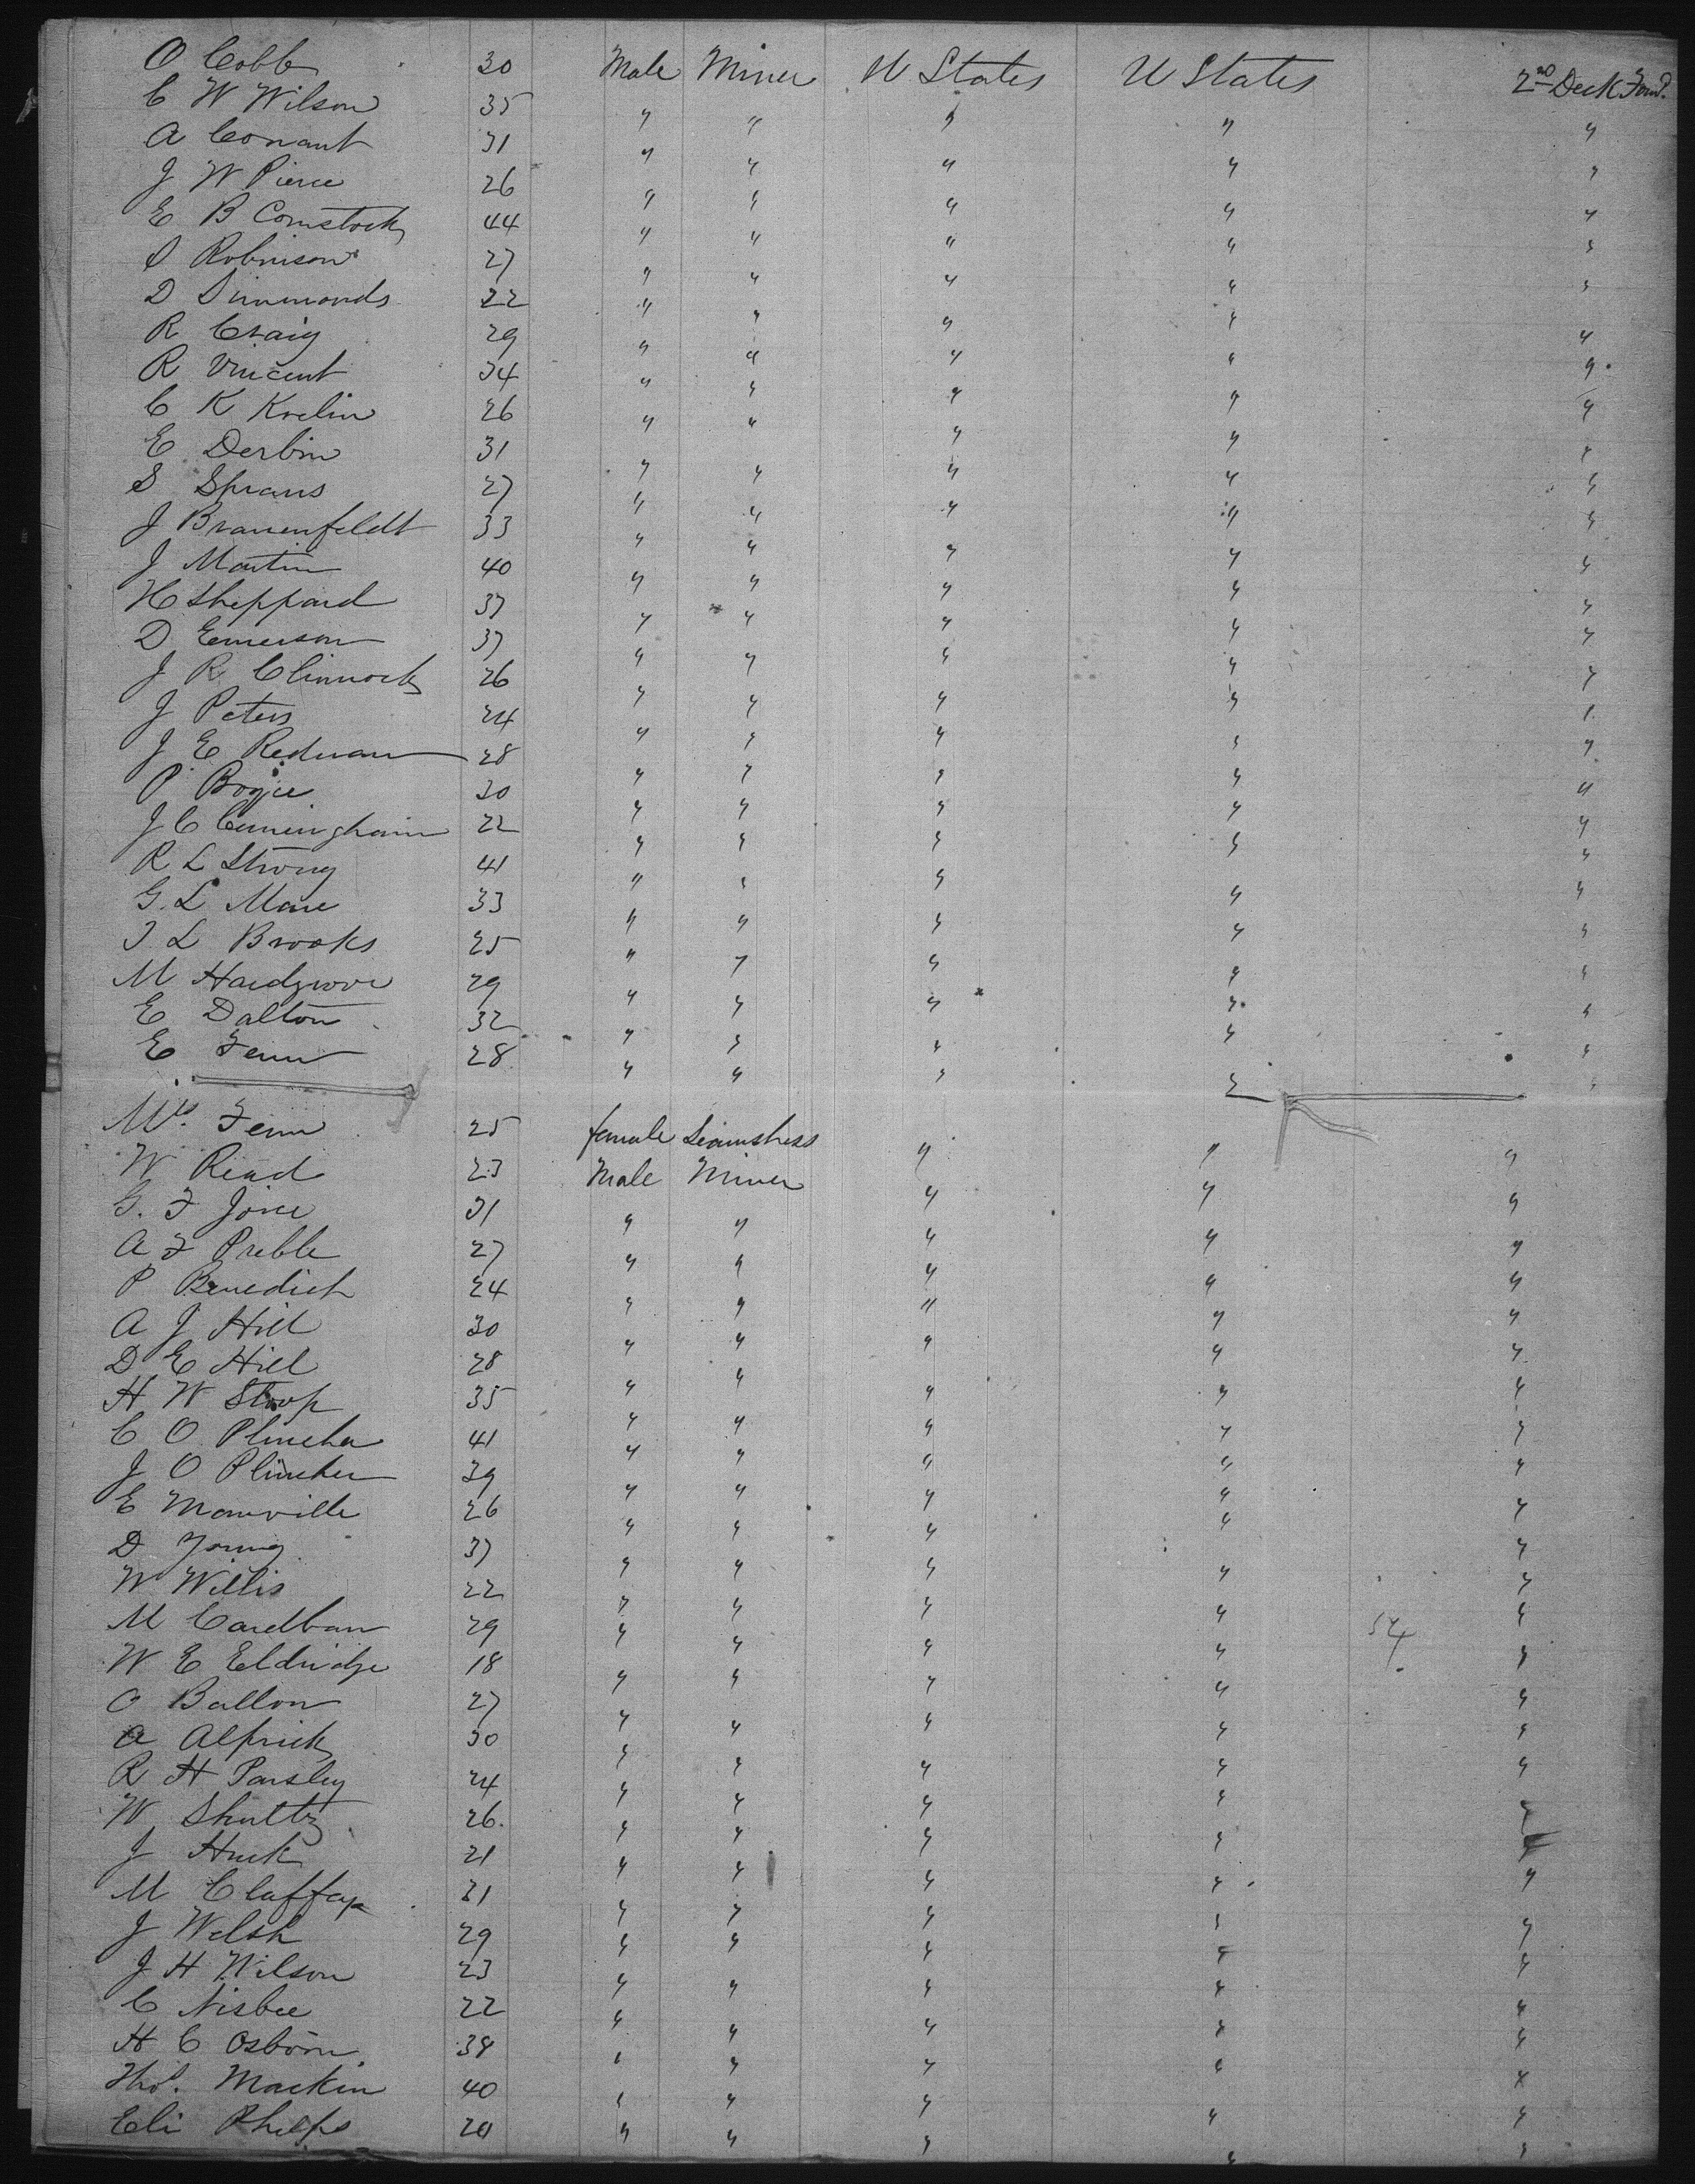 O Cobb 30 Male Miner U States U States 2nd Deck Forwd.
C W Wilson 35 " " " " "
A Conant 31 " " " " "
J W Pierce 26 " " " " "
E B Comstock 44 " " " " "
O Robinson 27 " " " " "
D Simmonds 22 " " " " "
R Craig 29 " " " " "
R Vincent 34 " " " " "
C K Krelin 26 " " " " "
E Derbin 31 " " " " "
S Spraus 27 " " " " "
J Branenfeldt 33 " " " " "
J Martin 40 " " " " "
H Sheppard 37 " " " " "
D Emerson 37 " " " " "
J R Clinnock 26 " " " " "
J Peters 24 " " " " "
J E Redman 28 " " " " "
P Bogie 30 " " " " "
J C Cuningham 22 " " " " "
R L Strong 41 " " " " "
G. L Mare 33 " " " " "
J L Brooks 25 " " " " "
M Hardgrove 29 " " " " "
E Dalton 32 " " " " "
E Fenn 28 " " " " "
Mrs. Fenn 25 female Seamstress " " "
W Read 23 Male Miner " " "
G. F Joice 31 " " " " "
A F Preble 27 " " " " "
P Benedict 24 " " " " "
A J Hill 30 " " " " "
D E Hill 28 " " " " "
H W Stoop 35 " " " " "
C O Plincher 41 " " " " "
J O Plincher 39 " " " " "
E Manville 26 " " " " "
D Young 37 " " " " "
W Willis 22 " " " " "
M Cardban 29 " " " " 54 "
W E Eldridge 18 " " " " "
O Ballon 27 " " " " "
A Alprick 30 " " " " "
R H Parsley 24 " " " " "
W Shultz 26. " " " " "
J Huck 21 " " " " "
M Claffay 31 " " " " "
J Welsh 29 " " " " "
J H Wilson 23 " " " " "
C Nisbee 22 " " " " "
H C Osborn 38 " " " " "
Thos. Mackin 40 " " " " "
Eli Phelps 20 " " " " "